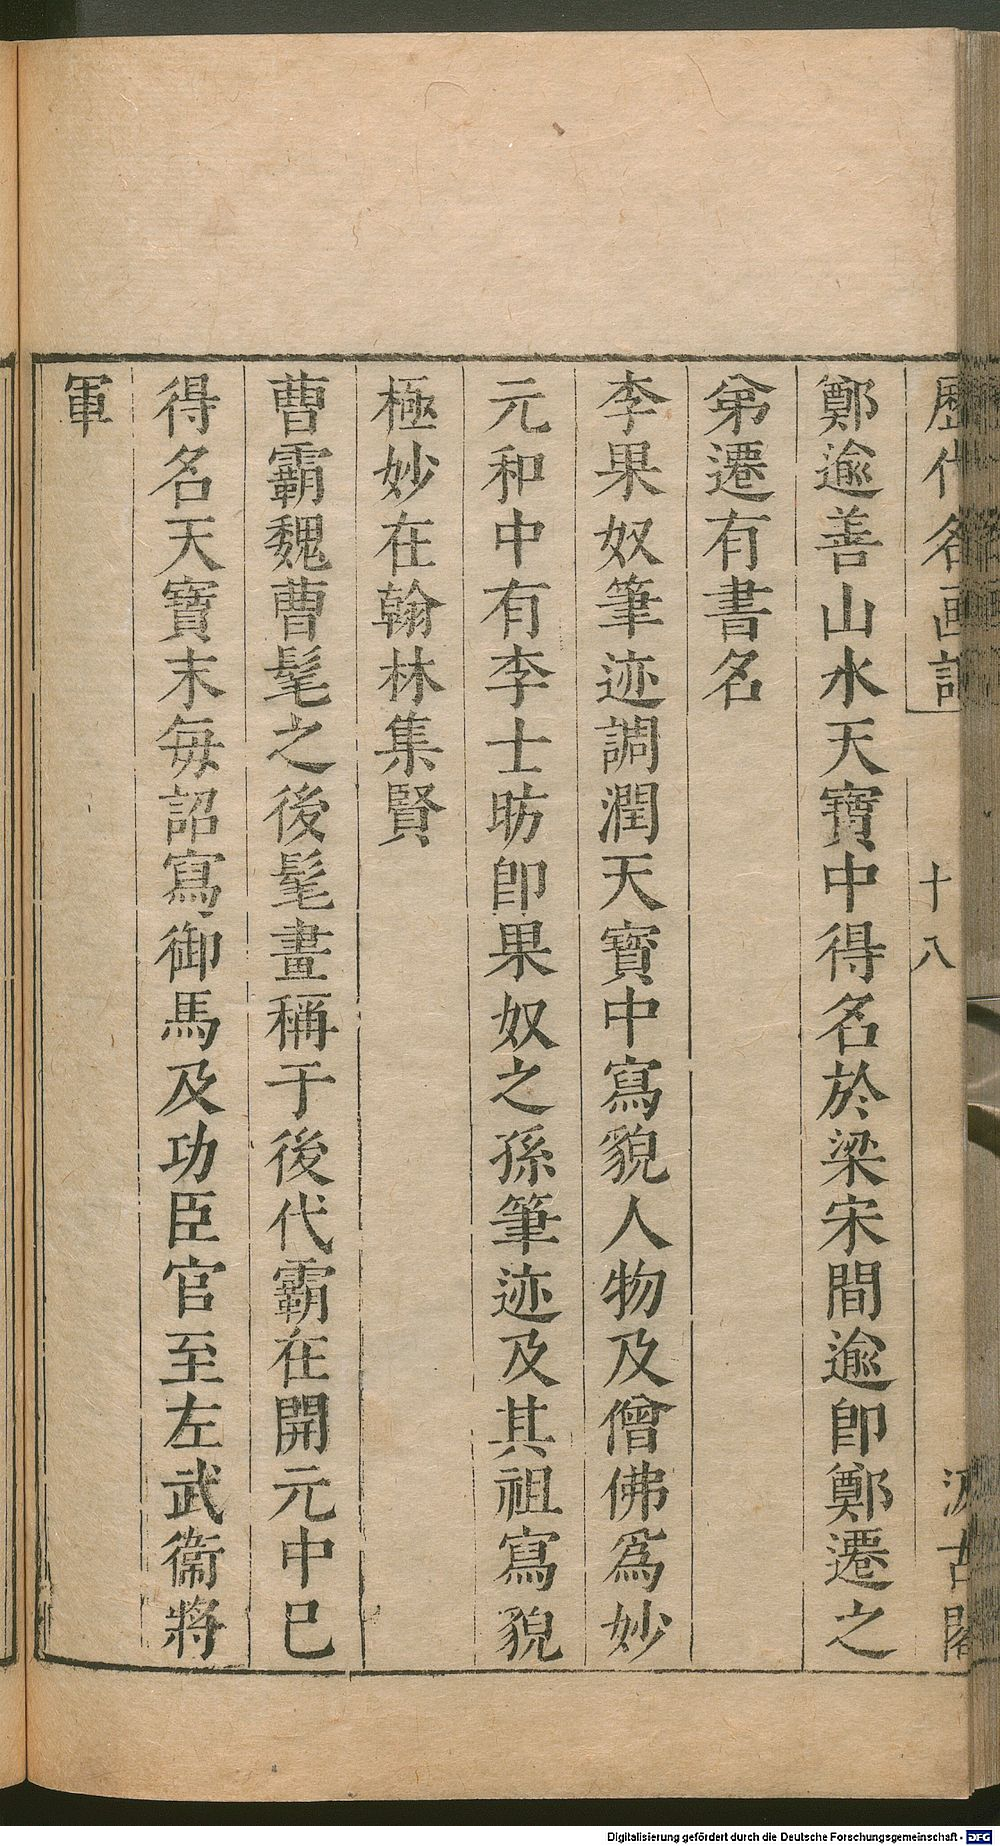 歷代名画記 十八 汲古閣
鄭逾善山水天寶中得名於梁宋間逾卽鄭遷之
弟遷有書名
李果奴筆迹調潤天寶中寫貌人物及僧佛爲妙
元和中有李士昉卽果奴之孫筆迹及其祖寫貌
極妙在翰林集賢
曹霸魏曹髦之後髦畫稱于後代霸在開元中巳
得名天寶末每詔寫御馬及功臣官至左武衞將
軍
Digitalisierung gefördert durch die Deutsche Forschungsgemeinschaft - DFG